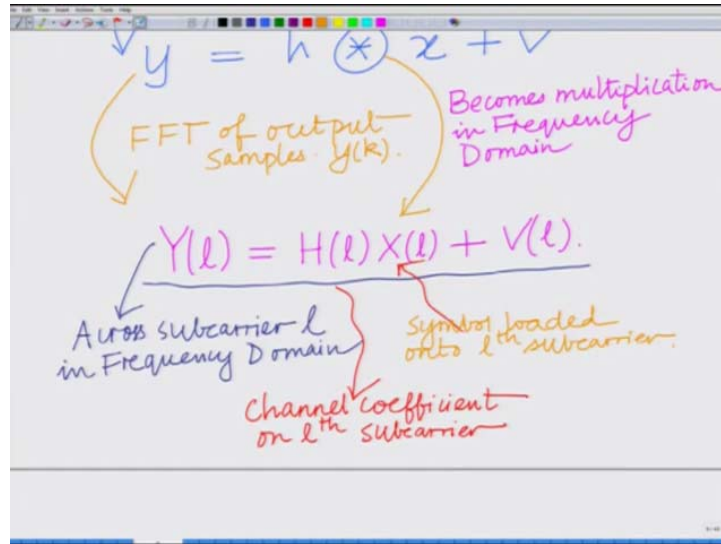 y = h ⊛ x + V
FFT of output
samples y(k).
Becomes multiplication
in Frequency
Domain
Y(l) = H(l) X(l) + V(l).
Across subcarrier l
in Frequency Domain
symbol loaded
onto lth subcarrier.
Channel coefficient
on lth subcarrier